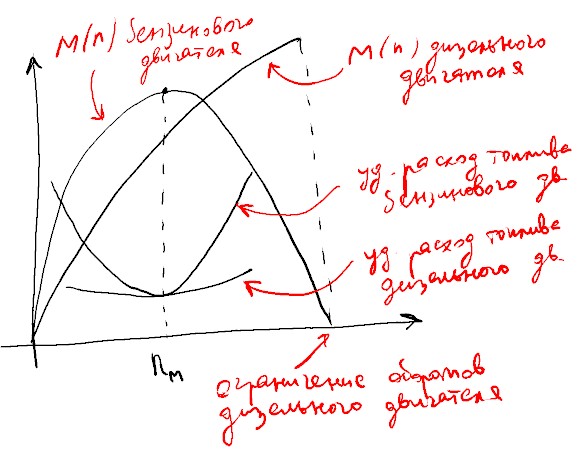 M(n) бензинового
двигателя
M(n) дизельного
двигателя
уд. расход топлива
бензинового дв.
уд расход топлива
дизельного дв.
n м
ограничение оборотов
дизельного двигателя